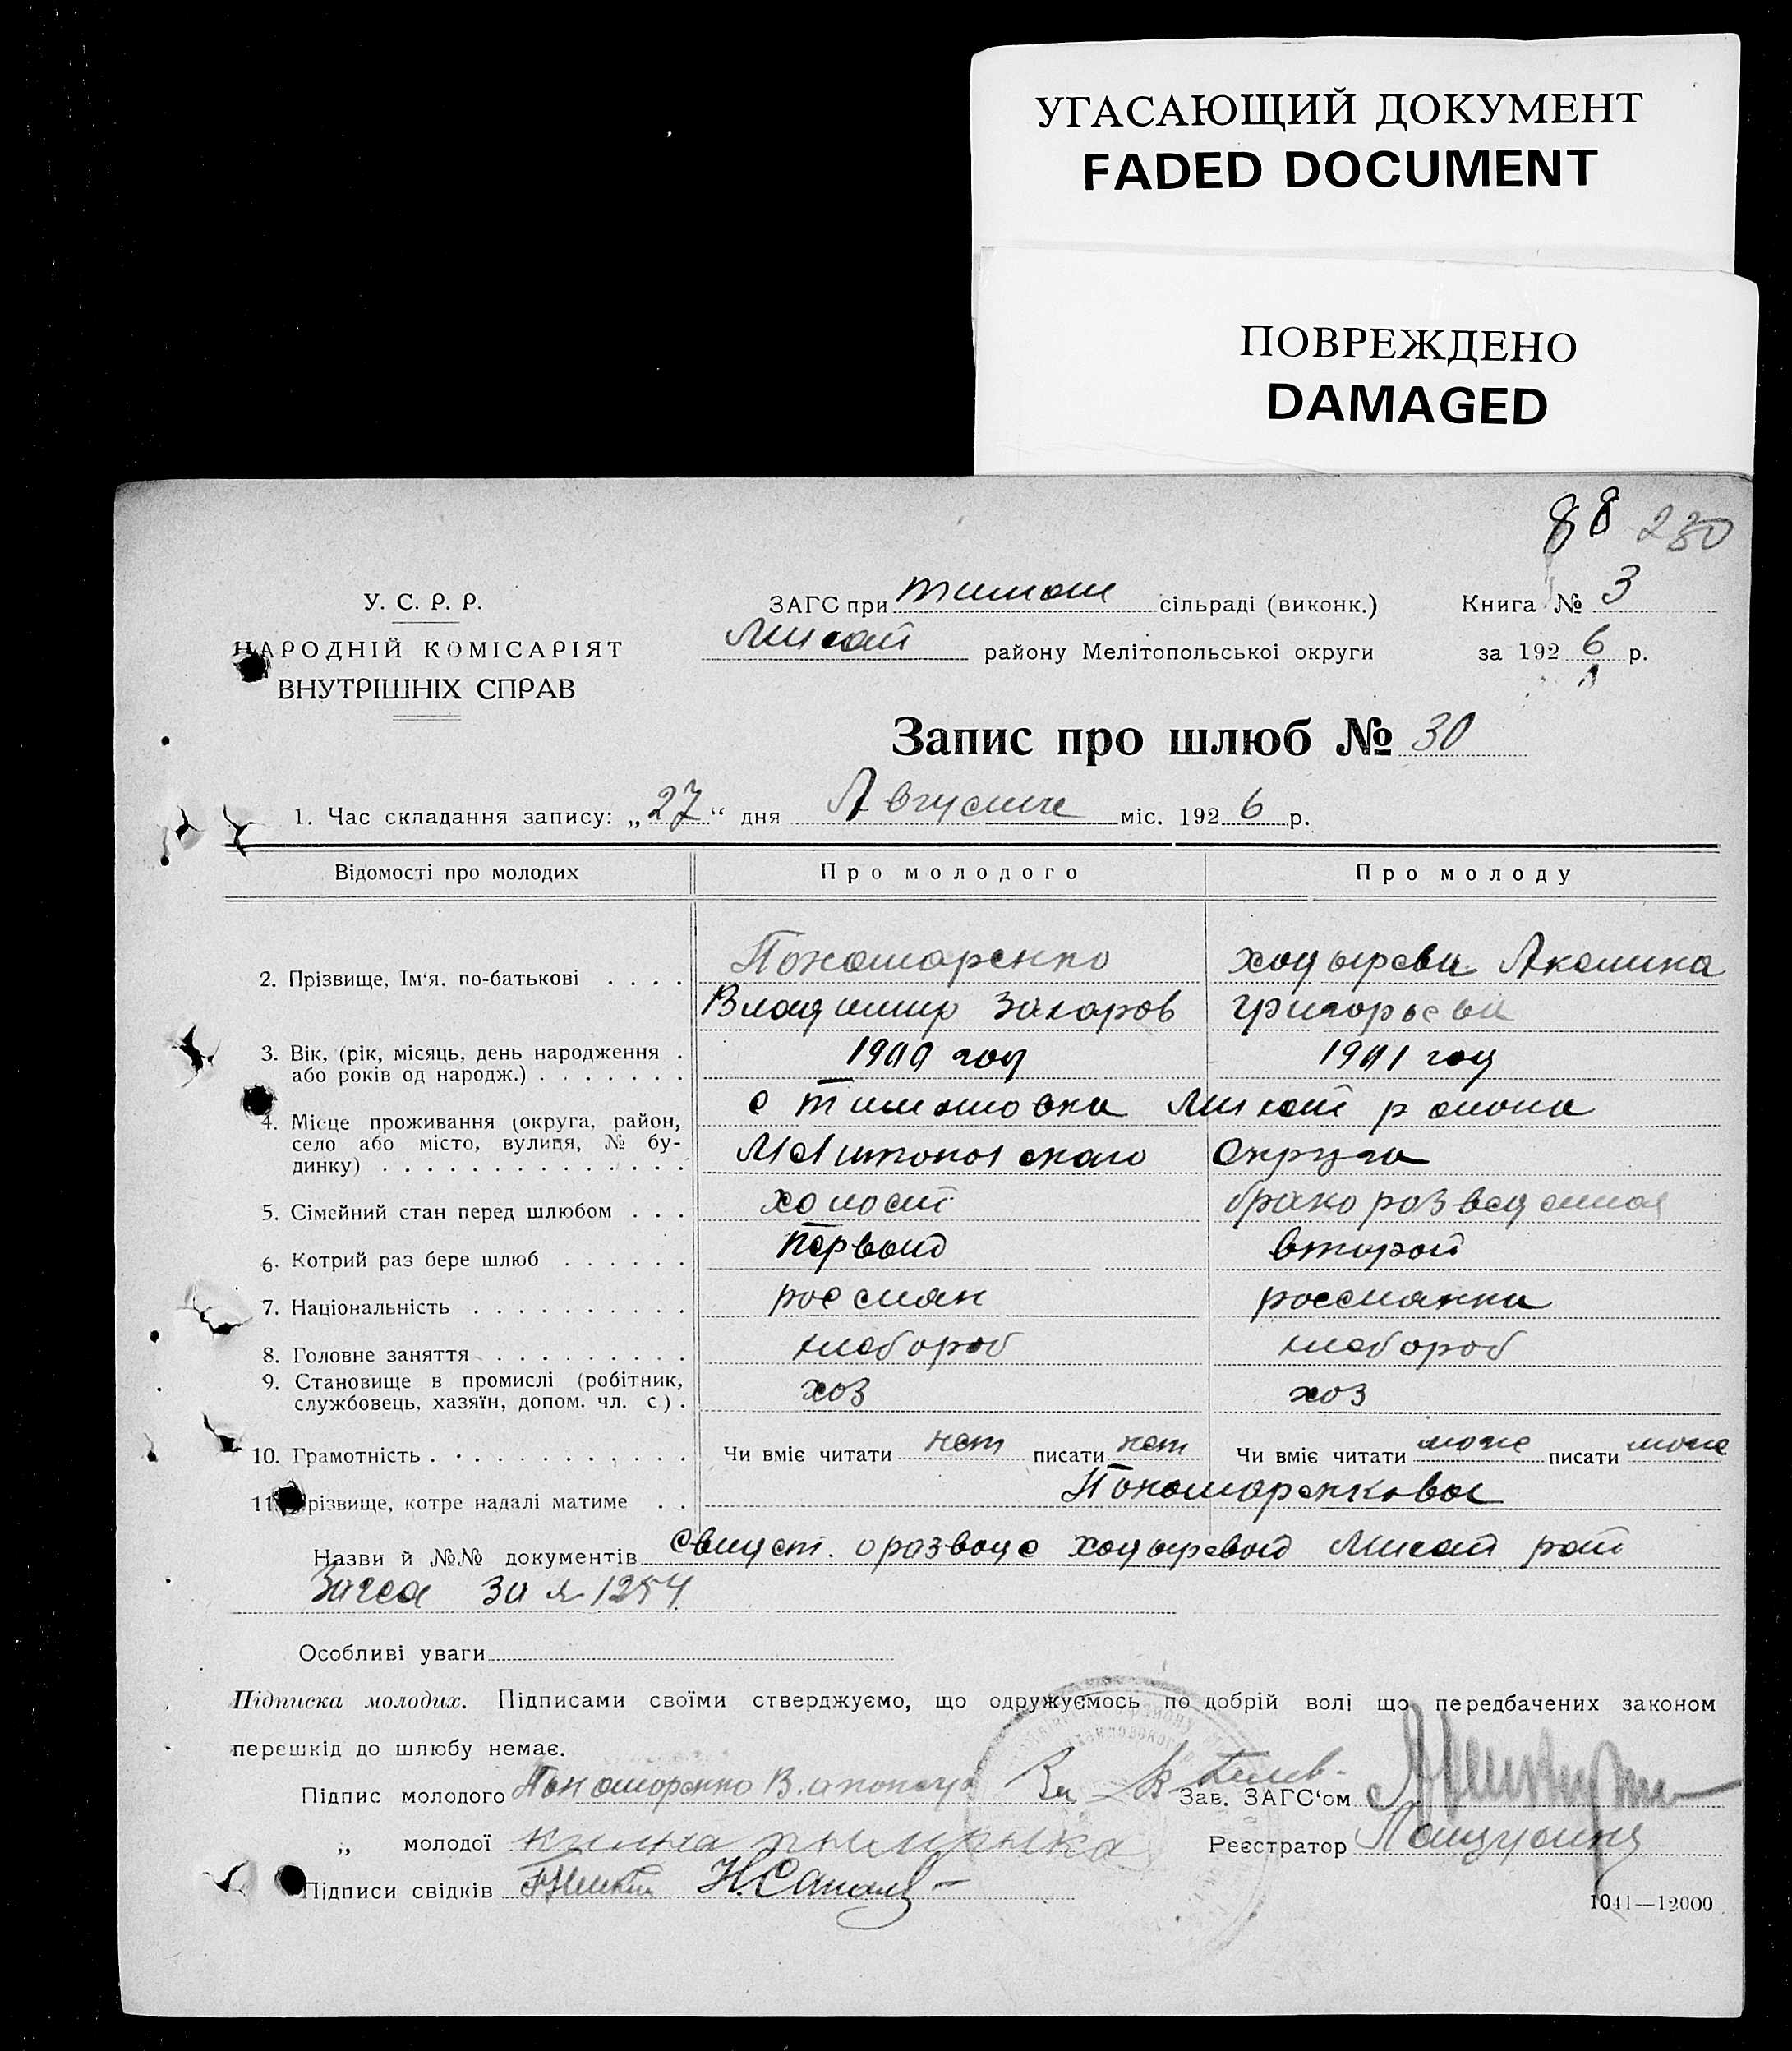 УГАСАЮЩИЙ ДОКУМЕНТ
FADED DOCUMENT
ПОВРЕЖДЕНО
DAMAGED
88 230
У. С. Р. Р.
НАРОДНІЙ КОМІСАРІЯТ
ВНУТРІШНІХ СПРАВ
ЗАГС при Тимош сільраді (виконк.)
Книга № 3
району Мелітопольської округи
за 1926 р.
Запис про шлюб № 30
1. Час складання запису: „27“ дня Августа міс. 1926 р.
Відомості про молодих
Про молодого
Про молоду
2. Прізвище, Ім‘я. по-батькові . . . .
Пономаренко
Ходырева Акелина
Владимир Захаров
Григорьева
3. Вік, (рік, місяць, день народження .
або років од народж.) . . . . . . .
1900 год
1901 год
4. Місце проживання (округа, район,
село або місто, вулиця, № бу-
динку) . . . . . . . . . . . . . .
с Тимошовка района
Мелитопольского Округа
5. Сімейний стан перед шлюбом . . .
холост
брако розведенная
6. Котрий раз бере шлюб . . . . . .
первый
второй
7. Національність . . . . . . . . . .
россиян
россиянка
8. Головне заняття . . . . . . . . .
хлебороб
хлебороб
9. Становище в промислі (робітник,
службовець, хазяїн, допом. чл. с) .
хоз
хоз
10. Грамотність . . . . . . . . . . .
Чи вміє читати нет писати нет
Чи вміє читати може писати може
11. Прізвище, котре надалі матиме . .
Пономаренкова
Назви й №№ документів свидет. о разводе Ходыревой
Загса за № 1254
Особливі уваги
Підписка молодих. Підписами своїми стверджуємо, що одружуємось по добрій волі що передбачених законом
перешкід до шлюбу немає.
Підпис молодого Пономаренко В.
Зав. ЗАГС‘ом
„ молодої
Реєстратор
Підписи свідків
1041—12000